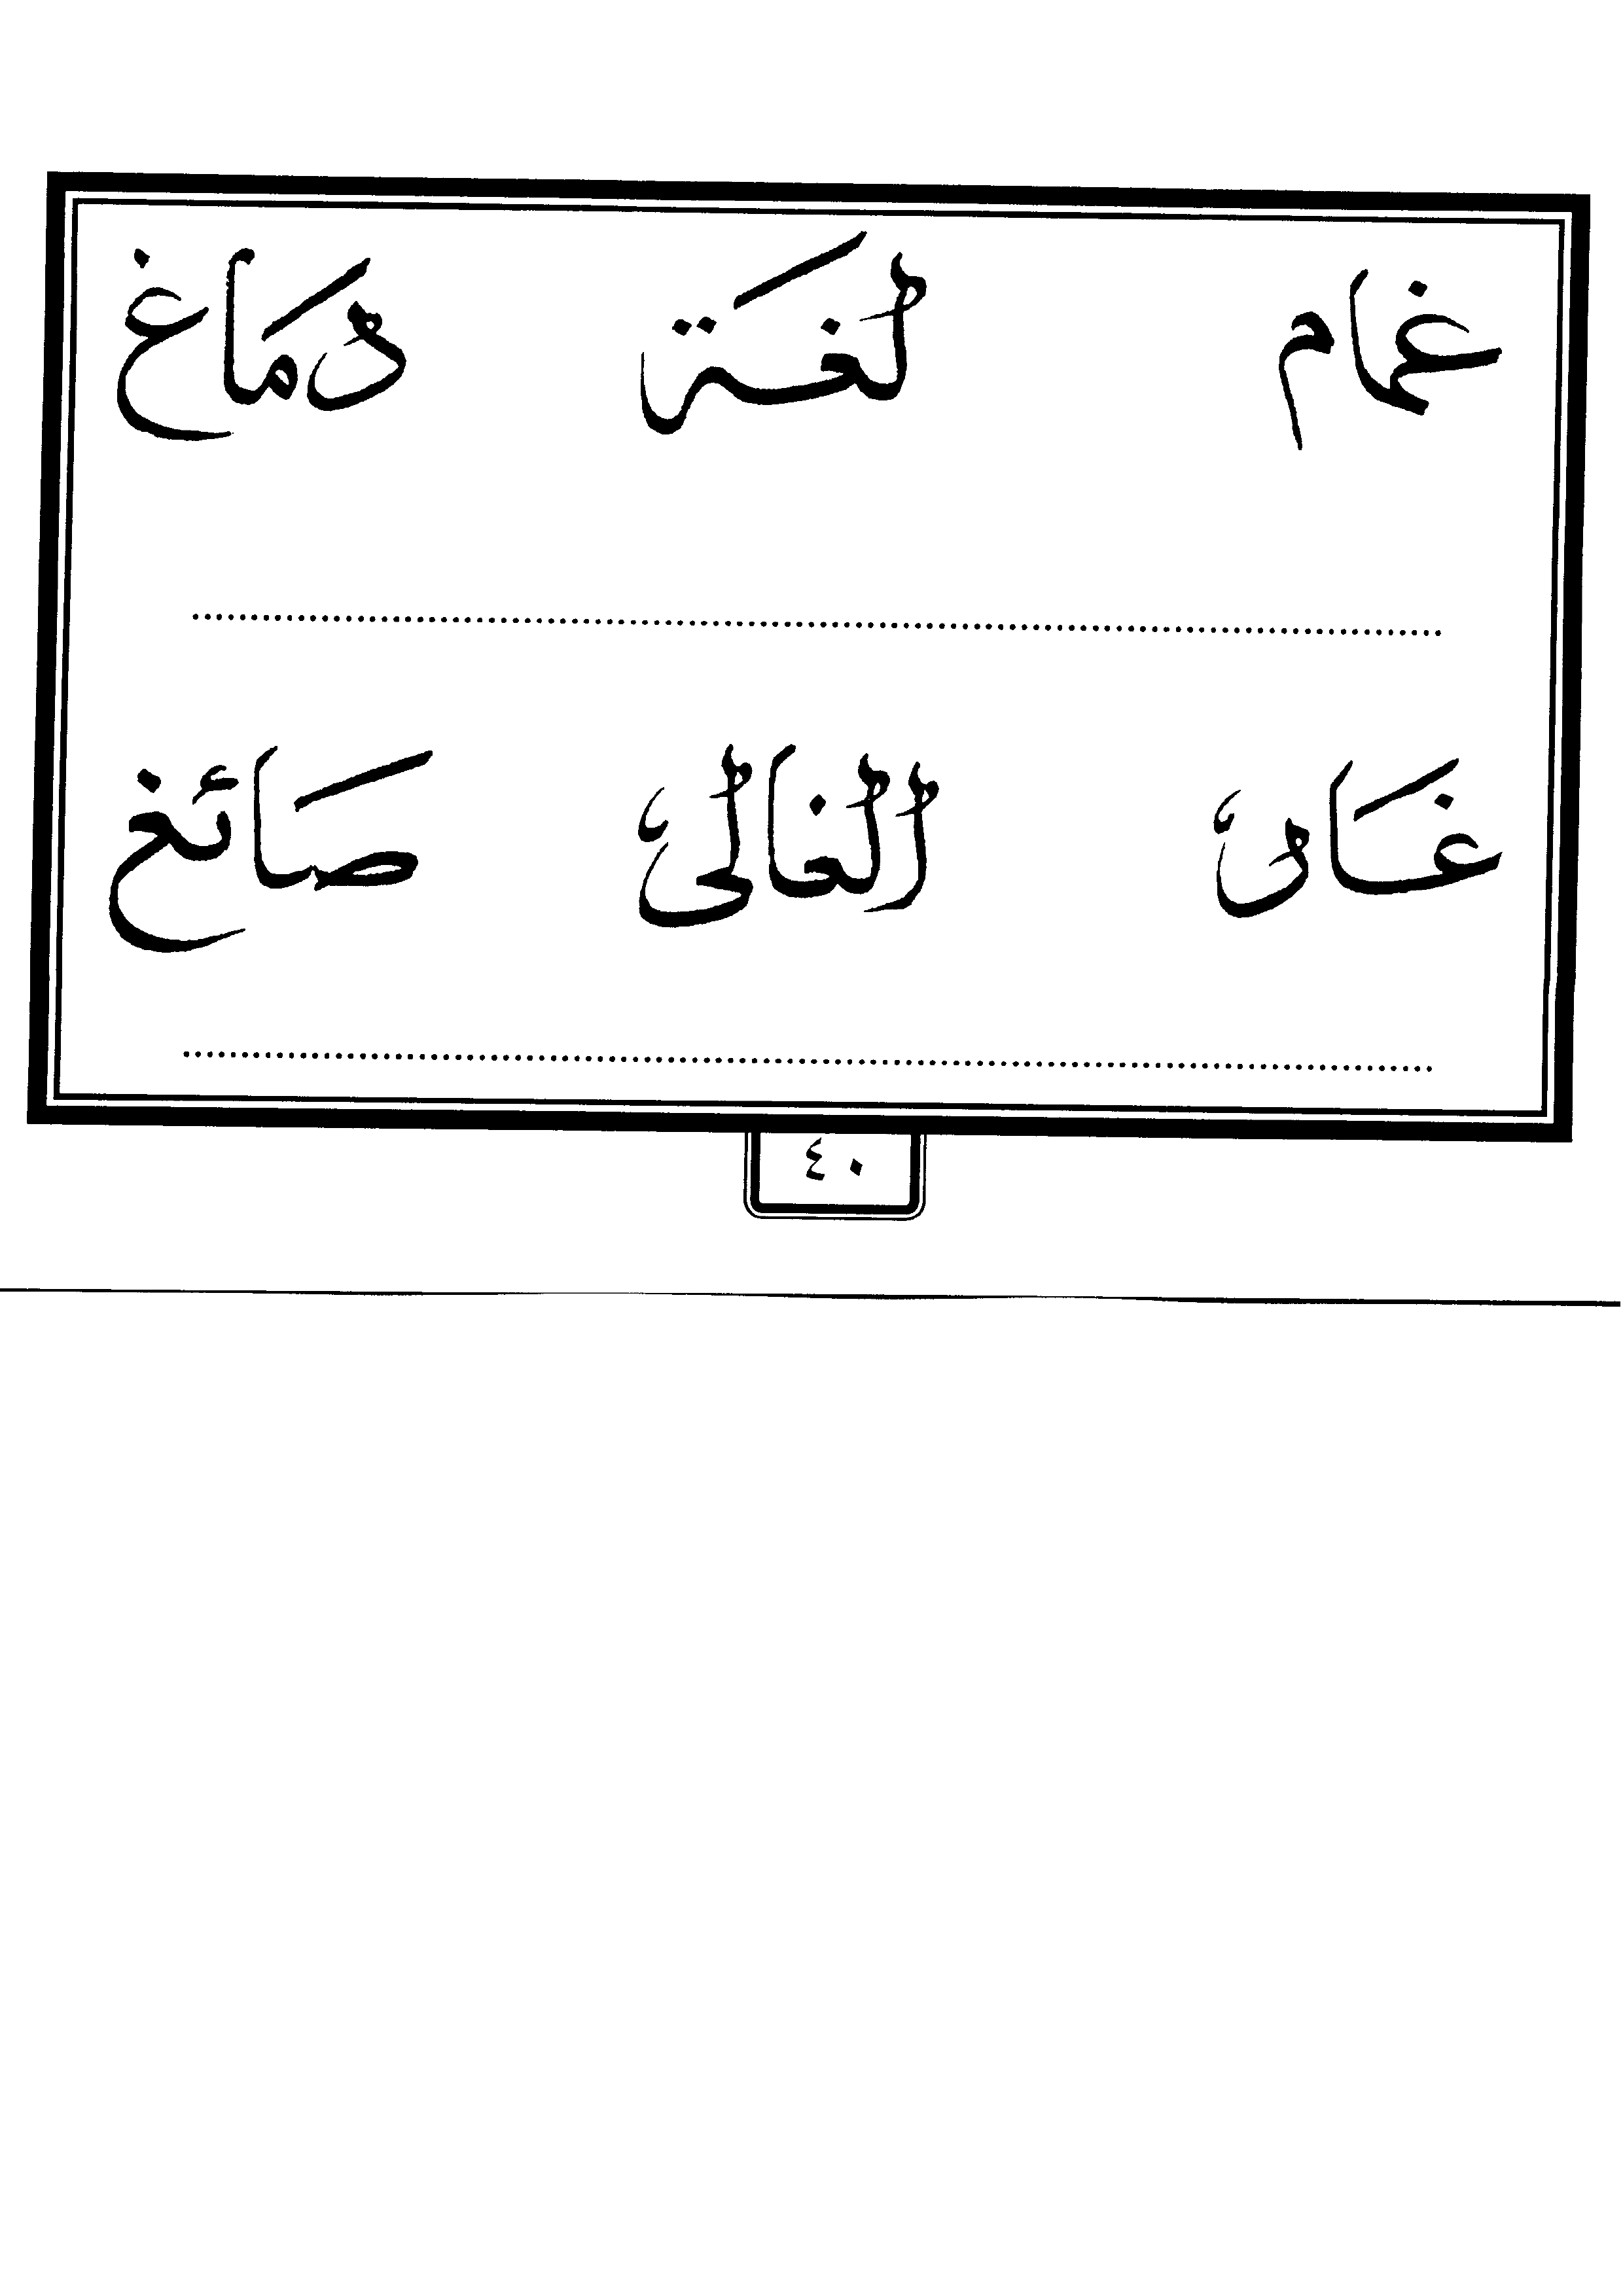 غمام لُغَة دُمَاغ
الُغالى صَائغ
٤٠